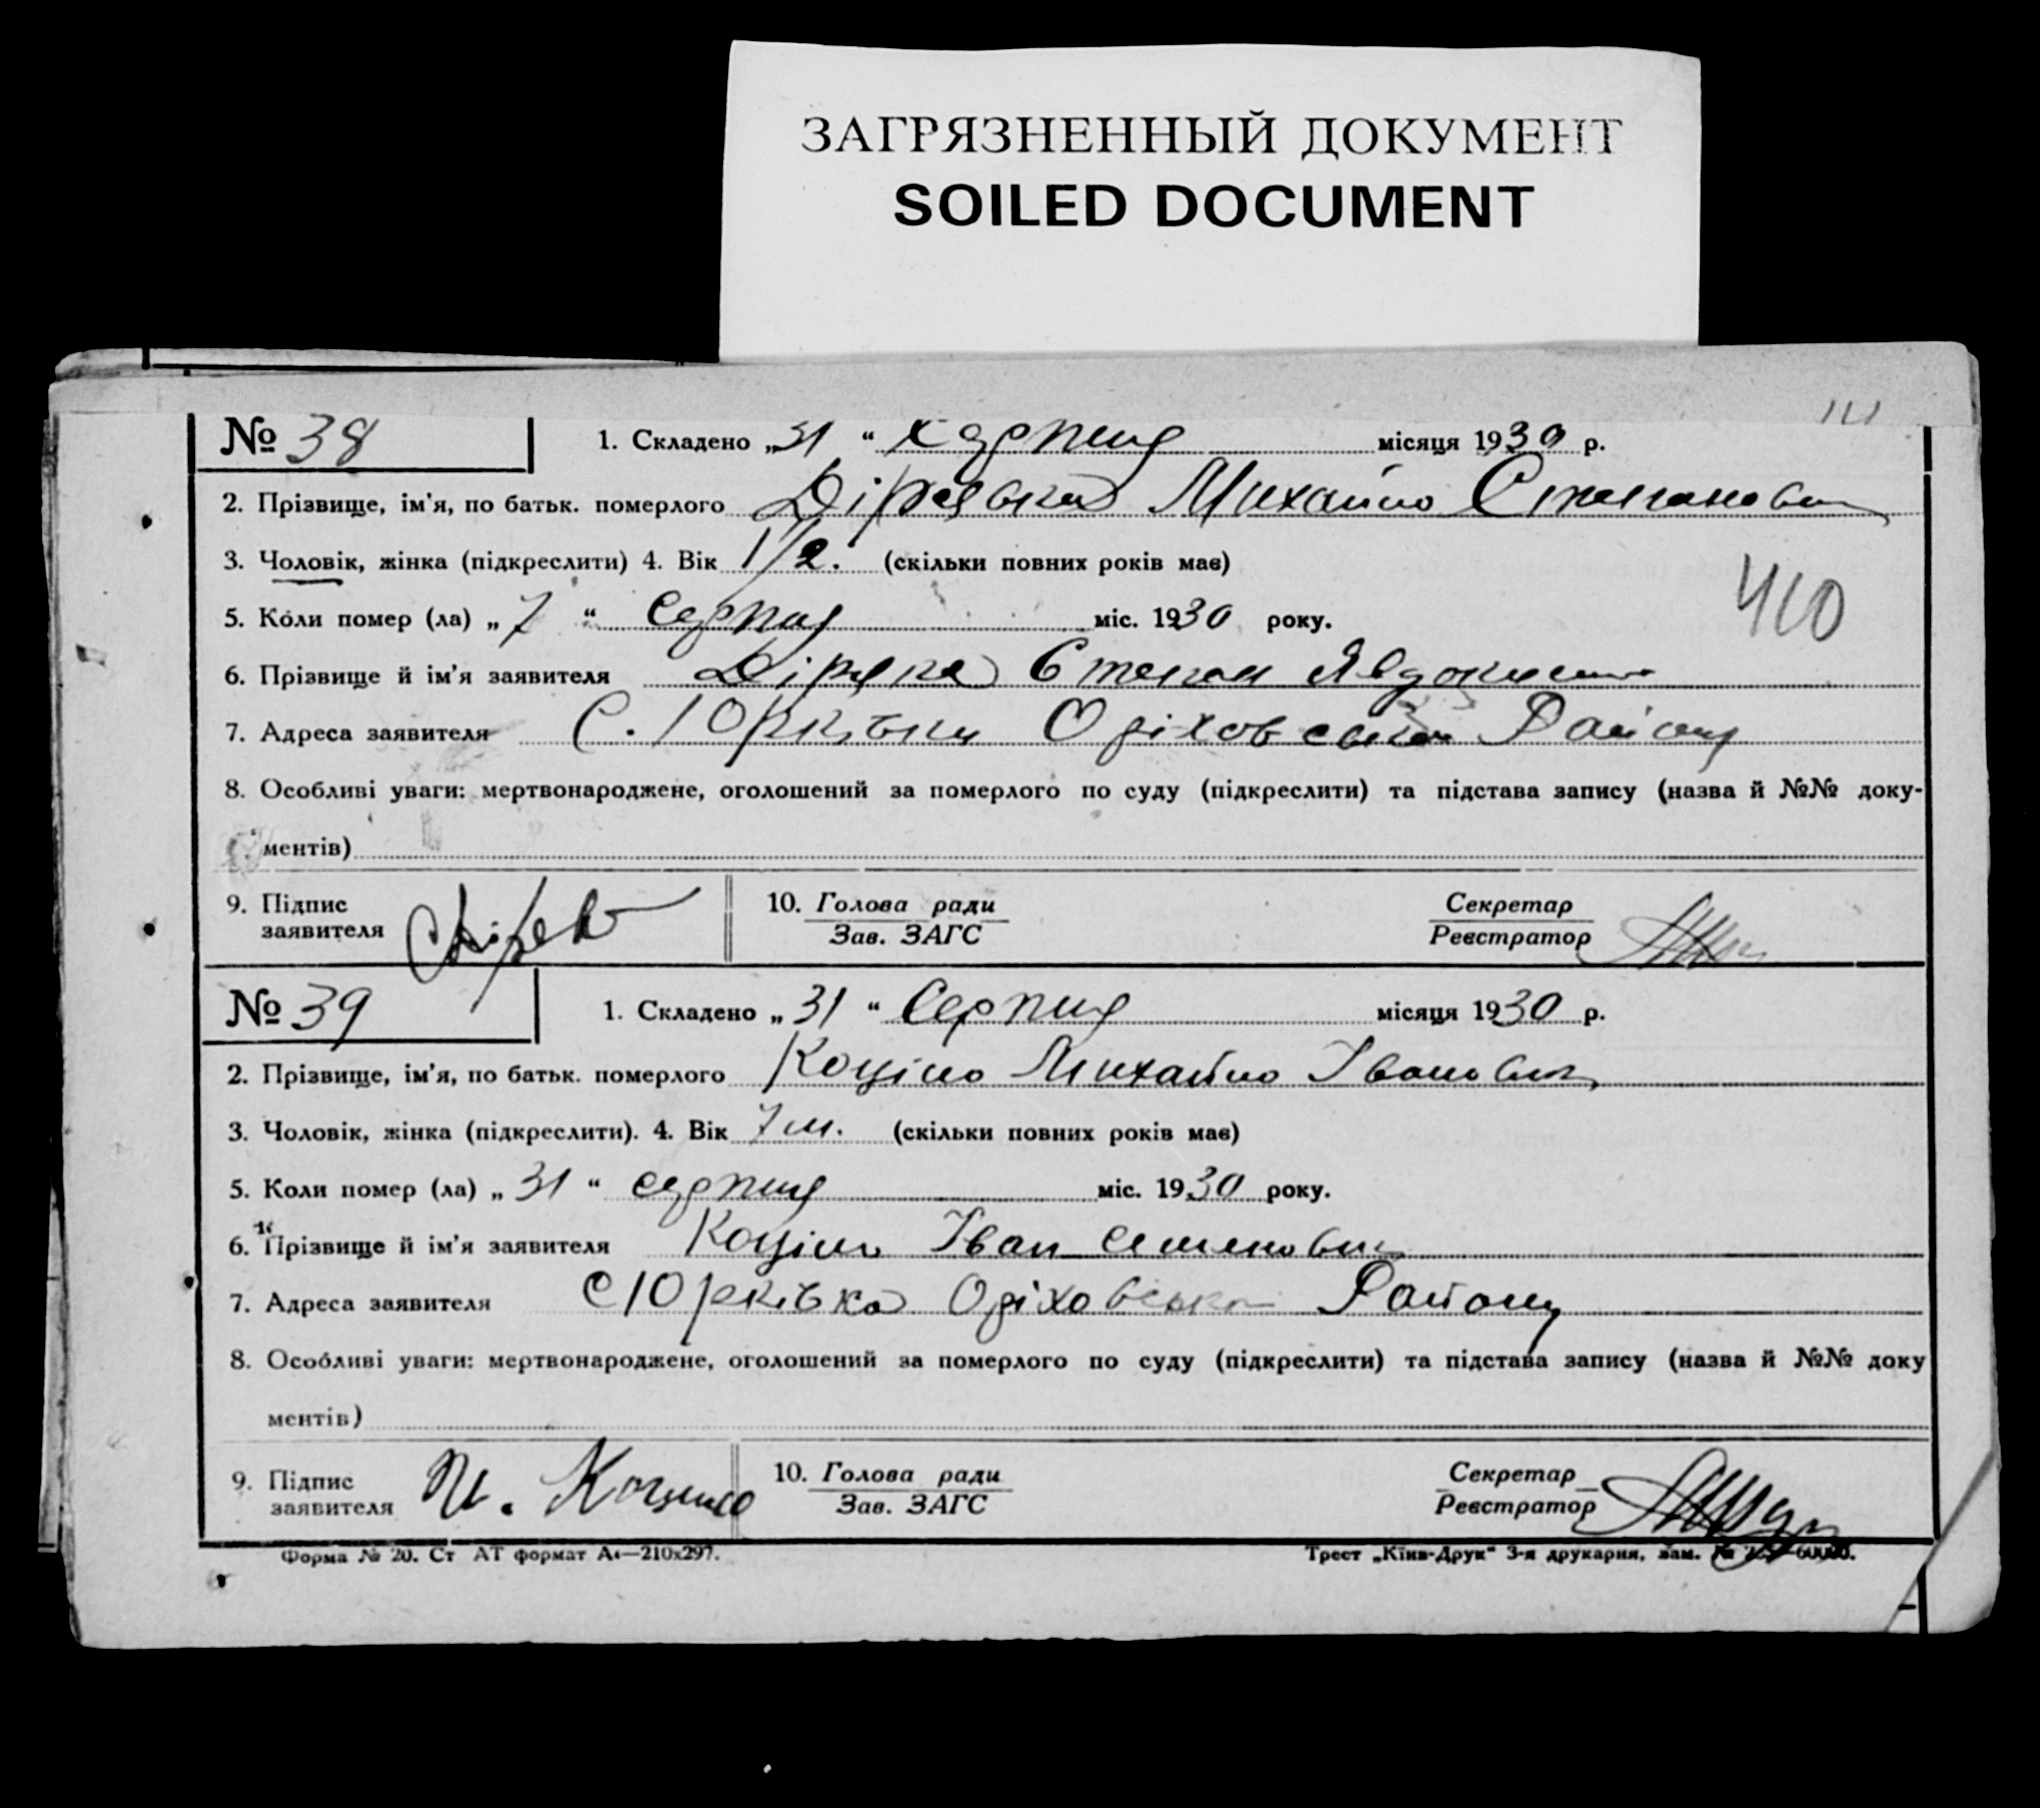 ЗАГРЯЗНЕННЫЙ ДОКУМЕНТ
SOILED DOCUMENT
№ 38 1. Складено „31“ серпня місяця 1930 р.
2. Прізвище, ім'я, по батьк. померлого Михайло Степанович
3. Чоловік, жінка (підкреслити) 4. Вік 1/2. (скільки повних років має)
410
5. Коли помер (ла) „7“ серпня міс. 1930 року.
6. Прізвище й ім'я заявителя Степан
7. Адреса заявителя с. Юрківка Оріховського Району
8. Особливі уваги: мертвонароджене, оголошений за померлого по суду (підкреслити) та підстава запису (назва й №№ доку-
ментів)
9. Підпис заявителя 10. Голова ради Секретар
Зав. ЗАГС Реєстратор
№ 39 1. Складено „31“ Серпня місяця 1930 р.
2. Прізвище, ім'я, по батьк. померлого Коціло Михайло Іванович
3. Чоловік, жінка (підкреслити). 4. Вік 7 м. (скільки повних років має)
5. Коли помер (ла) „31“ серпня міс. 1930 року.
6. Прізвище й ім'я заявителя Коціло Іван Семенович
7. Адреса заявителя с Юрківка Оріховського Району
8. Особливі уваги: мертвонароджене, оголошений за померлого по суду (підкреслити) та підстава запису (назва й №№ доку
ментів)
9. Підпис заявителя 10. Голова ради Секретар
Зав. ЗАГС Реєстратор
Форма № 20. Ст АТ формат А4—210х297. Трест „Київ-Друк“ 3-я друкарня, зам. №